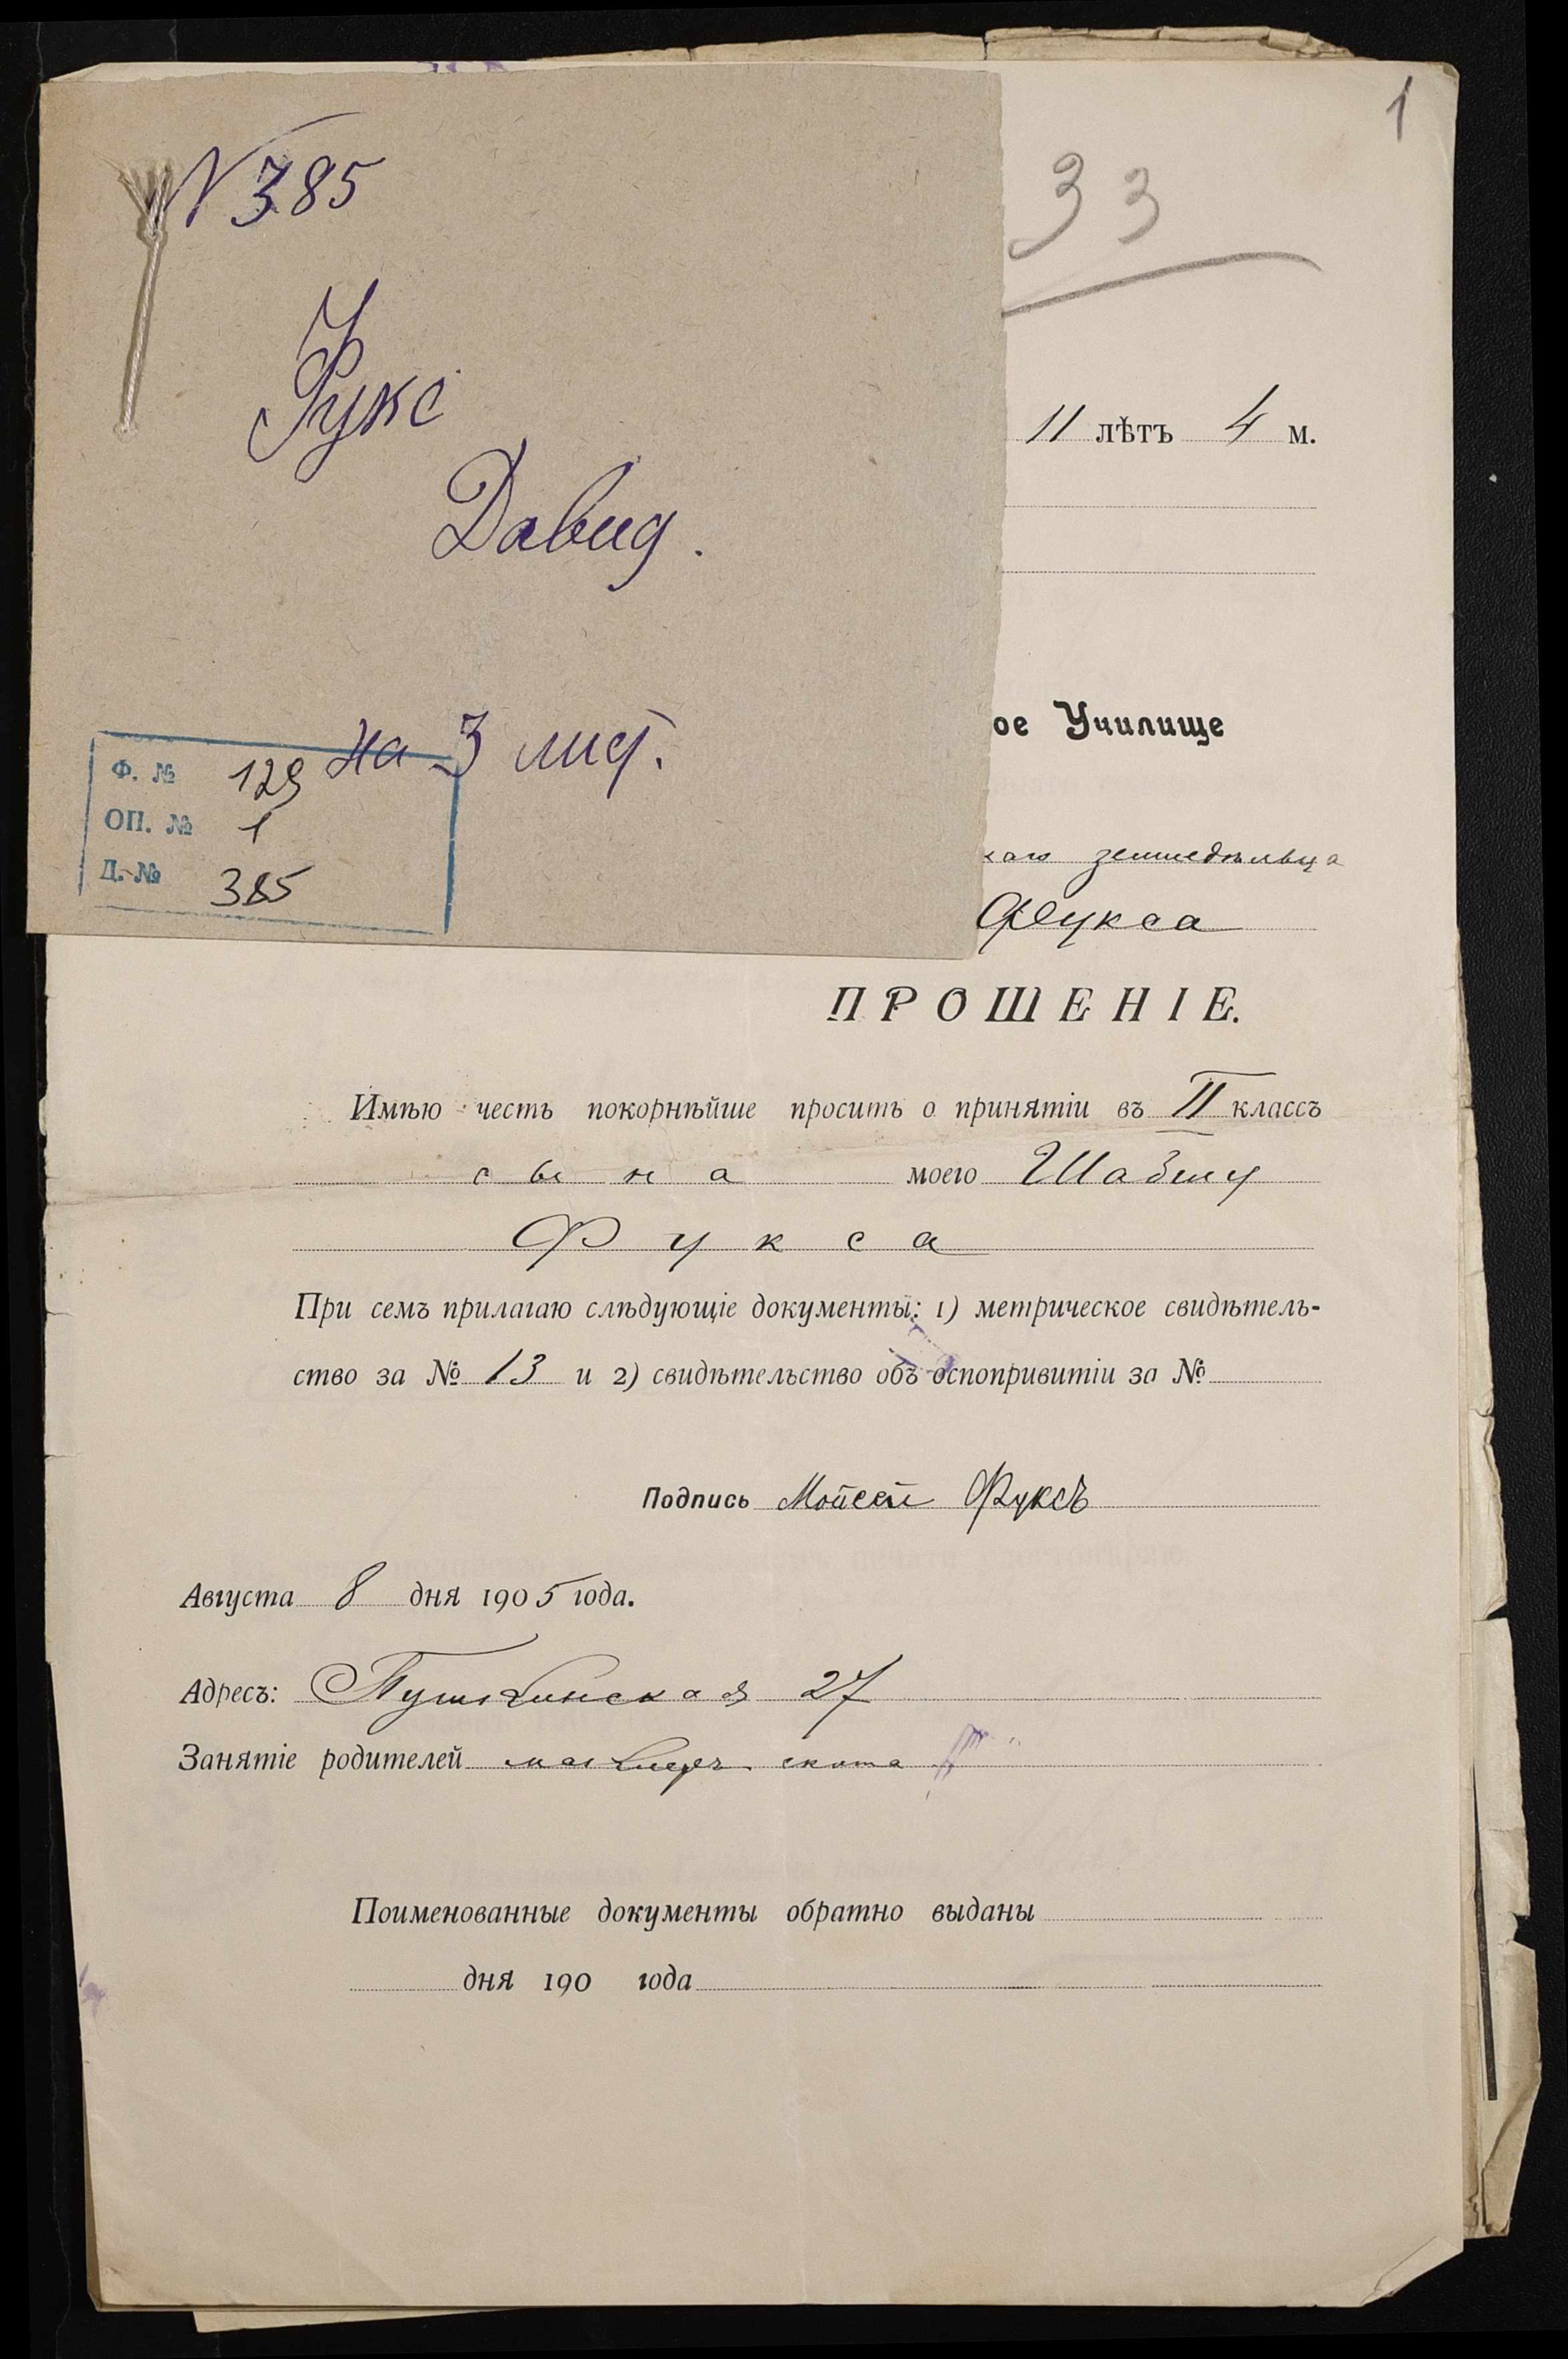 1
N 385
33
Фукс
Давид.
11 лѣтъ 4 м.
на 3 лист.
Ф. № 129
ОП. № 1
Д. № 385
ое Училище
каго земледѣльца
Фукса
ПРОШЕНІЕ.
Имѣю честь покорнѣйше просить о принятіи въ II классъ
сына моего
Фукса
При семъ прилагаю слѣдующіе документы: 1) метрическое свидѣтель-
ство за № 13 и 2) свидѣтельство объ оспопривитіи за №
Подпись Мойсей Фуксъ
Августа 8 дня 1905 года.
Адресъ: Пушкинская 27
Занятіе родителей маклеръ скота
Поименованные документы обратно выданы
дня 190 года